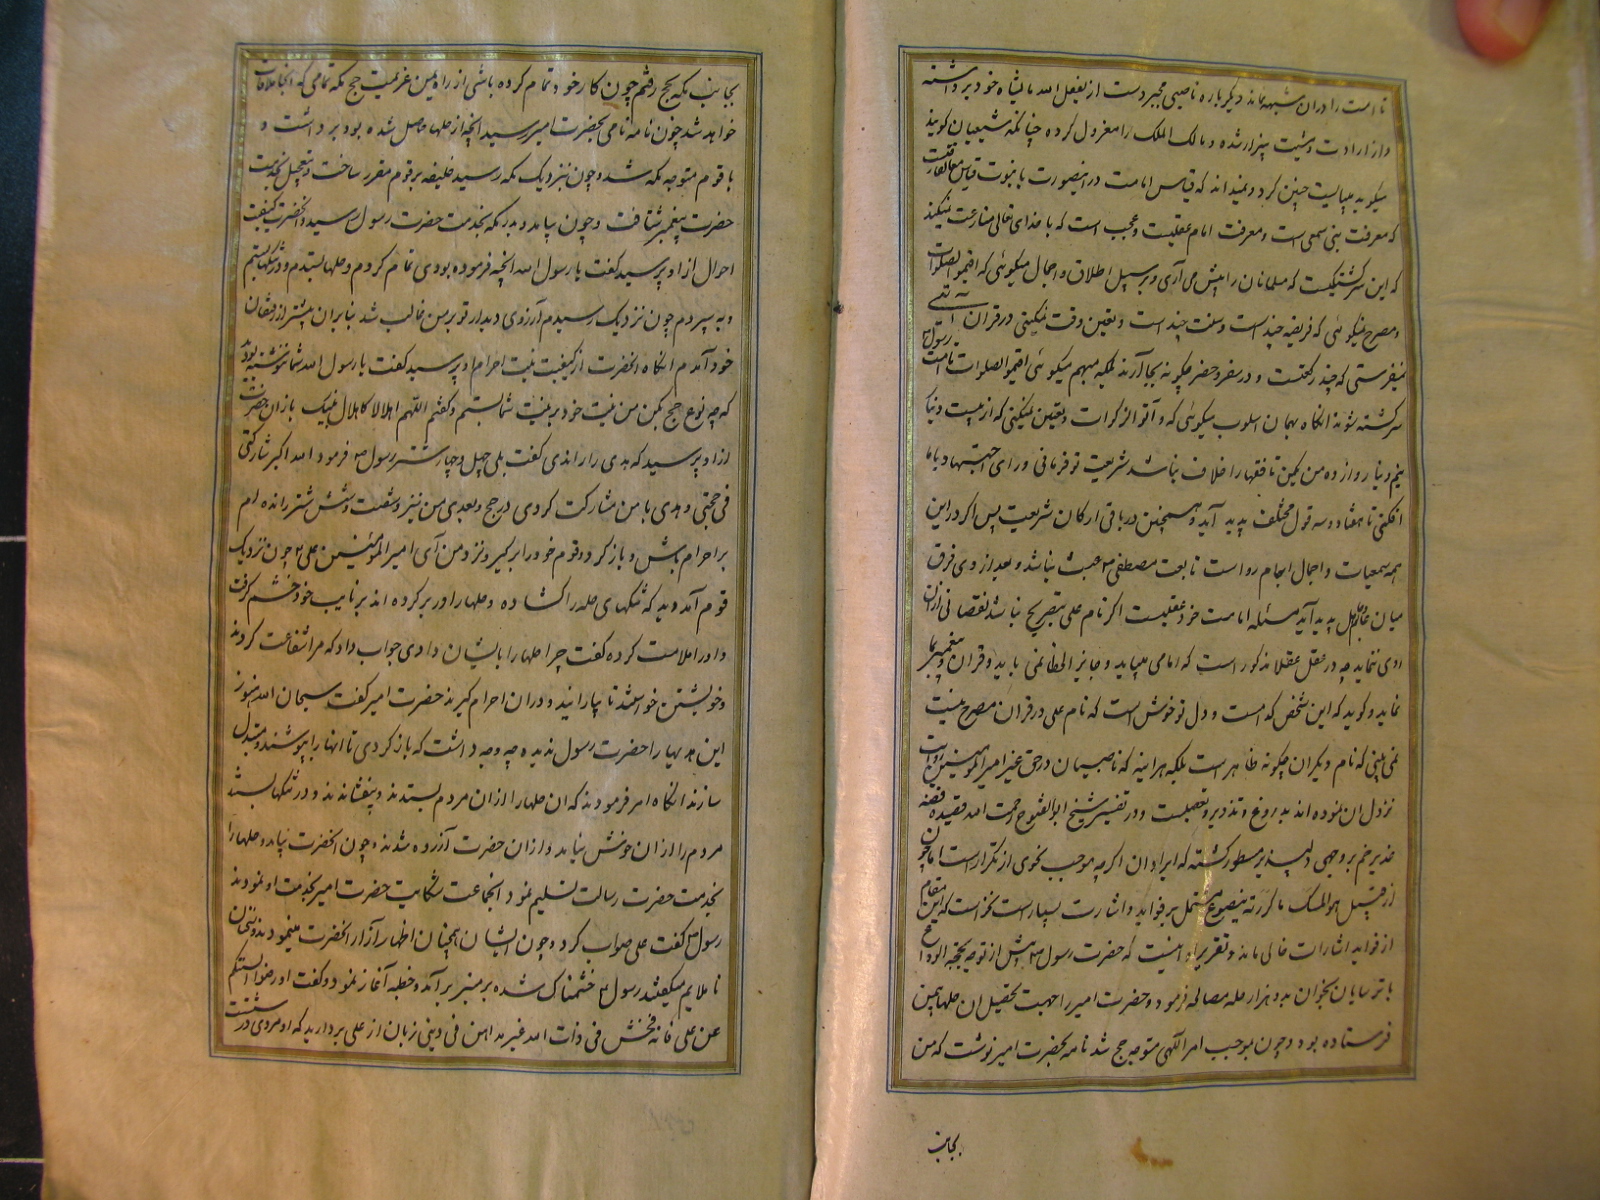 تا امت را دران شبهه نماند دیگر باره ناصبی مجبر دست از یفعل الله ما یشاء خود برداشته
و از ارادت و مشیت بیزار شده و مالک الملک را معزول کرده چنانکه شیعیان گویند
میگوید میبایست چنین کرد و نمیداند که قیاس امامت درینصورت با نبوت قیاس مع الفارقست
که معرفت نبی سمعی است و معرفت امام عقلیست و عجب است که با خدای تعالی منازعت نمیکند
که این سرگشتگیست که مسلمانان را پیش می آری و بر سبیل اطلاق و اجمال میگوئی که اقیموا الصلوات
و مصرح نمیگوئی که فریضه چند است و سنت چند است و تعیین وقت نمیکنی در قران آیتی
نمیفرستی که چند رکعتست و در سفر و حضر چگونه بجا آرند بلکه مبهم میگوئی اقیموا الصلوات تا امت رسول
سرگشته شوند آنگاه بهمان اسلوب میگوئی که و آتوا الزکوات و تعیین نمیکنی که از بیست دینار
نیم دینار و از ده من یکمن تا فقها را خلاف نباشد شریعت تو فرمانی و رای اجتهاد با ما
افکنی تا هفتاد و سه قول مختلف پدید آید و همچنین در باقی ارکان شریعت پس اگر در این
همه سمعیات و اجمال ابهام رواست تا بعثت مصطفی عبث نباشد و بعد از وی فرق
میان عالم و جاهل پدید آید مسئله امامت خود عقلیست اگر نام علی بتصریح نباشد نقصانی ازان
ادی ننماید چه در عقل عقلا مذکور است که امامی میباید و جایز الخطا نمی باید و قران و پیغمبر
نماید و گوید که این شخص کدامست و دل تو خوش است که نام علی در قران مصرح نیست
نمی بینی که نام دیگران چگونه ظاهر است بلکه هر آینه که ناصبیان در حق غیر امیر المؤمنین روایت
نزول ان نموده اند بدروغ و تزویر و تعصبست و در تفسیر شیخ ابو الفتوح رحمت الله قصه
غدیر خم بر وجهی دلپذیر مسطور گشته که ایراد ان اگرچه موجب نحوی از تکرار است اما چون
از قبیل هو المسک ما کررته یتضوع مشتمل بر فواید و اشارت بسیار است نخواست که این مقام
از فواید اشارات خالی ماند و تقریر او اینست که حضرت رسول پیش از توجه بحجة الوداع
با ترسایان نجران بدو هزار حله مصالحه فرمود و حضرت امیر را جهت تحصیل ان حلها بیمن
فرستاده بود و چون بموجب امر الهی متوجه حج شد نامه بحضرت امیر نوشت که من
بجانب
بجانب مکه بحج رفتم چون کار خود تمام کرده باشی از راه یمن عزیمت حج مکه نمامی که آنجا ملاقات
خواهد شد چون نامه نامی بحضرت امیر رسید انچه از حلها حاصل شده بود برداشت و
با قوم متوجه مکه شد و چون نزدیک مکه رسید خلیفه بر قوم مقرر ساخت و بتعجیل بخدمت
حضرت پیغمبر شتافت و چون بیامد و بدر مکه بخدمت حضرت رسول رسید و انحضرت کیفیت
احوال از او پرسید گفت یا رسول الله انچه فرموده بودی تمام کردم و حلها بستدم و در تنگها بستم
و بسپردم چون نزدیک رسیدم آرزوی دیدار تو بر من غالب شد بنابران پیشتر از رفیقان
خود آمدم انگاه انحضرت از کیفیت نیت احرام او پرسید گفت یا رسول الله شما ننوشته بودید
که چه نوع حج بکن من نیت خود بر نیت شما بستم و گفتم اللهم اهلالا کاهلال نبیک بازان حضرت
از او پرسید که هدی را راندی گفت بلی چهل و چهار شتر رسول فرمود الله اکبر شارکتنی
فی حجتی و هدیی با من مشارکت کردی در حج و بهدی من نیز و شصت و شش شتر رانده ام
بر احرام باش و باز گرد و قوم خود را برگیر و نزد من آی امیر المؤمنین علی چون نزدیک
قوم آمد دید که تنگهای حله را گشاده و حلها را در بر کرده اند بر نایب خود خشم گرفت
و او را ملامت کرده گفت چرا حلها را بایشان دادی جواب داد که مرا شفاعت کردند
و خویشتن خواستند تا بیارایند و دران احرام گیرند حضرت امیر گفت سبحان الله هنوز
این هدیها را حضرت رسول ندیده چه وجه داشت که باز کردی تا انها را بپوشند و مبتذل
سازند انگاه امر فرمودند که ان حلها را ازان مردم بستدند و بیفشاندند و در تنگها بستند
مردم را ازان خوش نیامد و ازان حضرت آزرده شدند و چون انحضرت بیامد و حلها را
بخدمت حضرت رسالت تسلیم نمود انجماعت شکایت حضرت امیر بخدمت او نمودند
رسول گفت علی صواب کرد و چون ایشان همچنان اظهار آزار انحضرت مینمودند و سخنان
ناملایم میگفتند رسول خشمناک شده بر منبر برآمد و خطبه آغاز نمود و گفت ارفعوا السنتکم
عن علی فانه خشن فی ذات الله غیر مداهن فی دینی زبان از علی بردارید که او مردی درشتست